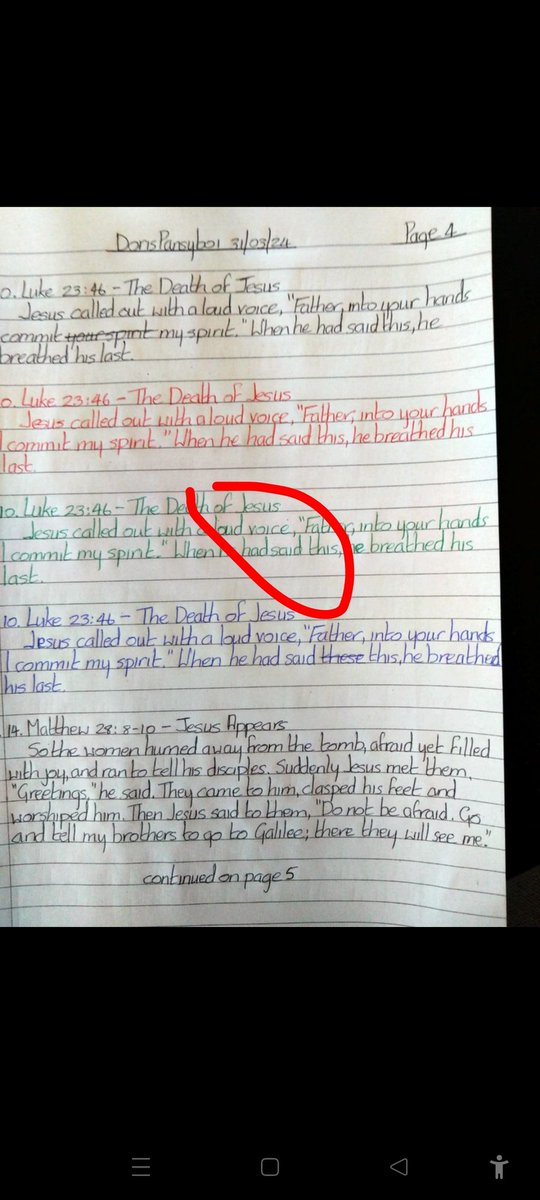 DorisPansyboi 31/03/24 Page 4
0. Luke 23:46 - The Death of Jesus
Jesus called out with a loud voice, "Father, into your hands
commit your spirit my spirit." When he had said this, he
breathed his last.
0. Luke 23:46 - The Death of Jesus
Jesus called out with a loud voice, "Father, into your hands
I commit my spirit." When he had said this, he breathed his
last.
10. Luke 23:46 - The Death of Jesus
Jesus called out with a loud voice, "Father, into your hands
I commit my spirit." When he had said this, he breathed his
last.
10. Luke 23:46 - The Death of Jesus
Jesus called out with a loud voice, "Father, into your hands
I commit my spirit." When he had said these this, he breathed
his last.
14. Matthew 28: 8-10 - Jesus Appears
So the women hurried away from the tomb, afraid yet filled
with joy, and ran to tell his disciples. Suddenly Jesus met them.
"Greetings," he said. They came to him, clasped his feet and
worshiped him. Then Jesus said to them, "Do not be afraid. Go
and tell my brothers to go to Galilee; there they will see me."
continued on page 5